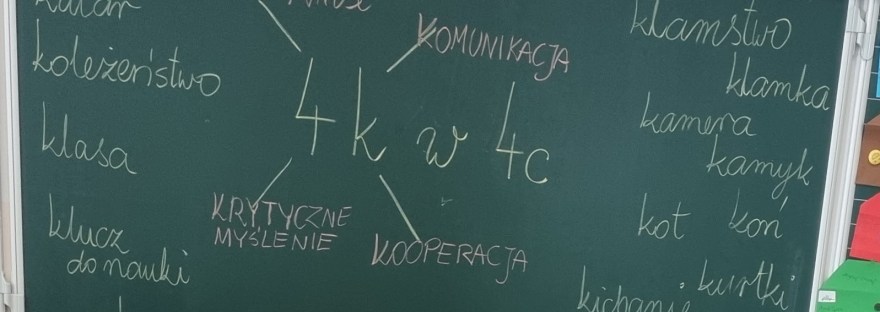 koleżeństwo
klasa
klucz
do nauki
KOMUNIKACJA
4 k w 4c
KRYTYCZNE
MYŚLENIE
KOOPERACJA
kłamstwo
klamka
kamera
kamyk
kot koń
kurtki
kichanie